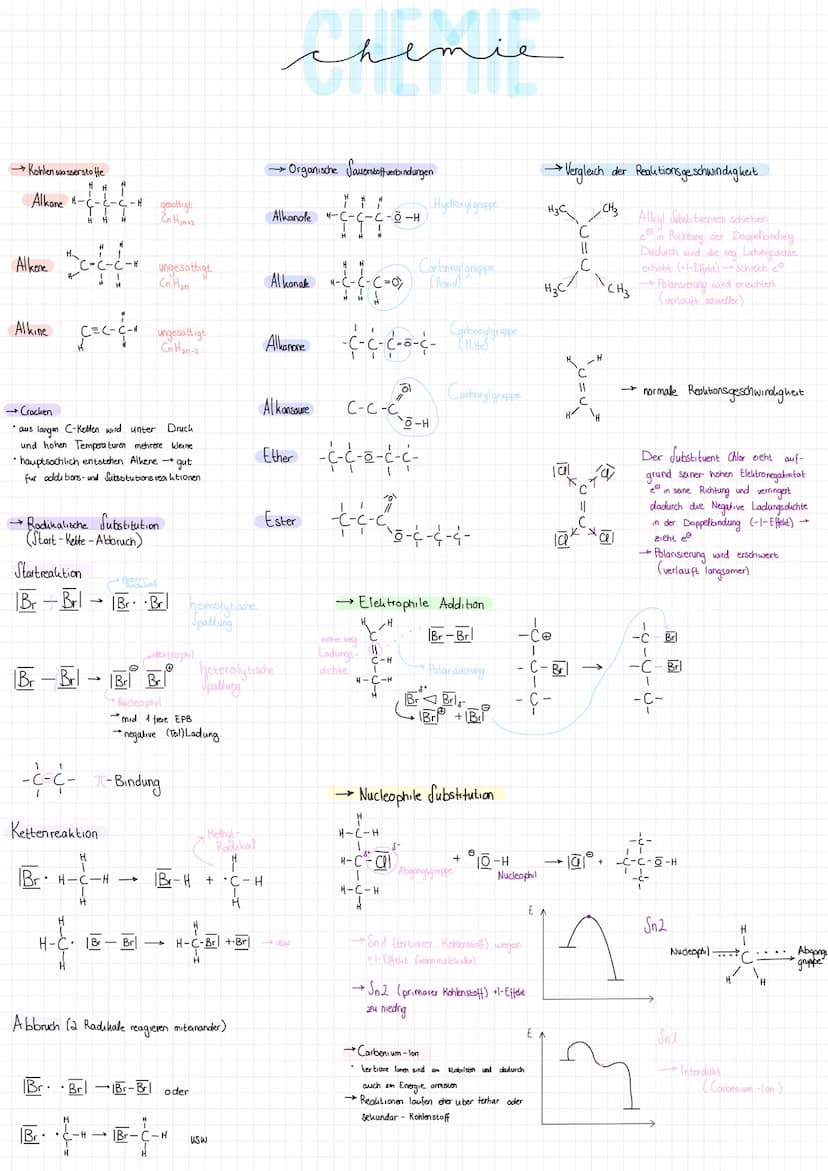 CHEMIE
chemie
→ Kohlenwasserstoffe
Alkane
gesättigt
CnH2n+2
Alkene
ungesättigt
CnH2n
Alkine
ungesättigt
CnH2n-2
→ Cracken
• aus langen C-Ketten wird unter Druck
und hohen Temperaturen mehrere kleine
• hauptsächlich entstehen Alkene → gut
für additions- und Substitutionsreaktionen
→ Radikalische Substitution
(Start-Kette-Abbruch)
Startreaktion
Brom-
Radikal
|Br – Br| → |Br· ·Br|
homolytische
Spaltung
Elektrophil
|Br – Br| → |Br|⊖ Br|⊕
heterolytische
Spaltung
Nucleophil
→ mind 1 freie EPB
→ negative (Teil)Ladung
-C-C- π-Bindung
Kettenreaktion
Methyl-
Radikal
|Br· H-C-H → |Br-H + ·C-H
H-C· |Br – Br| → H-C-Br| + ·Br| → usw
Abbruch (2 Radikale reagieren miteinander)
|Br· ·Br| → |Br-Br| oder
|Br· ·C-H → |Br-C-H usw
→ Organische Sauerstoffverbindungen
Alkanole
Hydroxylgruppe
Alkanale
Carbonylgruppe
(Rand)
Alkanone
Carbonylgruppe
(Mitte)
Alkansäure
Carboxylgruppe
Ether
Ester
→ Elektrophile Addition
hohe neg
Ladungs-
dichte
|Br-Br|
Polarisierung
→ Nucleophile Substitution
Abgangsgruppe
Nucleophil
→ Sn1 (tertiärer Kohlenstoff) wegen
+I-Effekt (monomolekular)
→ Sn2 (primärer Kohlenstoff) +I-Effekt
zu niedrig
→ Carbenium-Ion
• tertiäre Ionen sind am stabilsten und dadurch
auch am Energie ärmsten
→ Reaktionen laufen eher über tertiär oder
Sekundär-Kohlenstoff
→ Vergleich der Reaktionsgeschwindigkeit
H3C CH3
C
||
C
H3C CH3
Alkyl Substituenten schieben
e⊖ in Richtung der Doppelbindung
Dadurch wird die neg Ladungsdichte
erhöht (+I-Effekt) → schiebt e⊖
→ Polarisierung wird erleichtert
(verläuft schneller)
→ normale Reaktionsgeschwindigkeit
Der Substituent Chlor zieht auf-
grund seiner hohen Elektronegativität
e⊖ in seine Richtung und verringert
dadurch die Negative Ladungsdichte
in der Doppelbindung (-I-Effekt) →
zieht e⊖
→ Polarisierung wird erschwert
(verläuft langsamer)
E
Sn2
Nucleophil
Abgangs
gruppe
E
Sn1
→ Interdukt
(Carbenium-Ion)